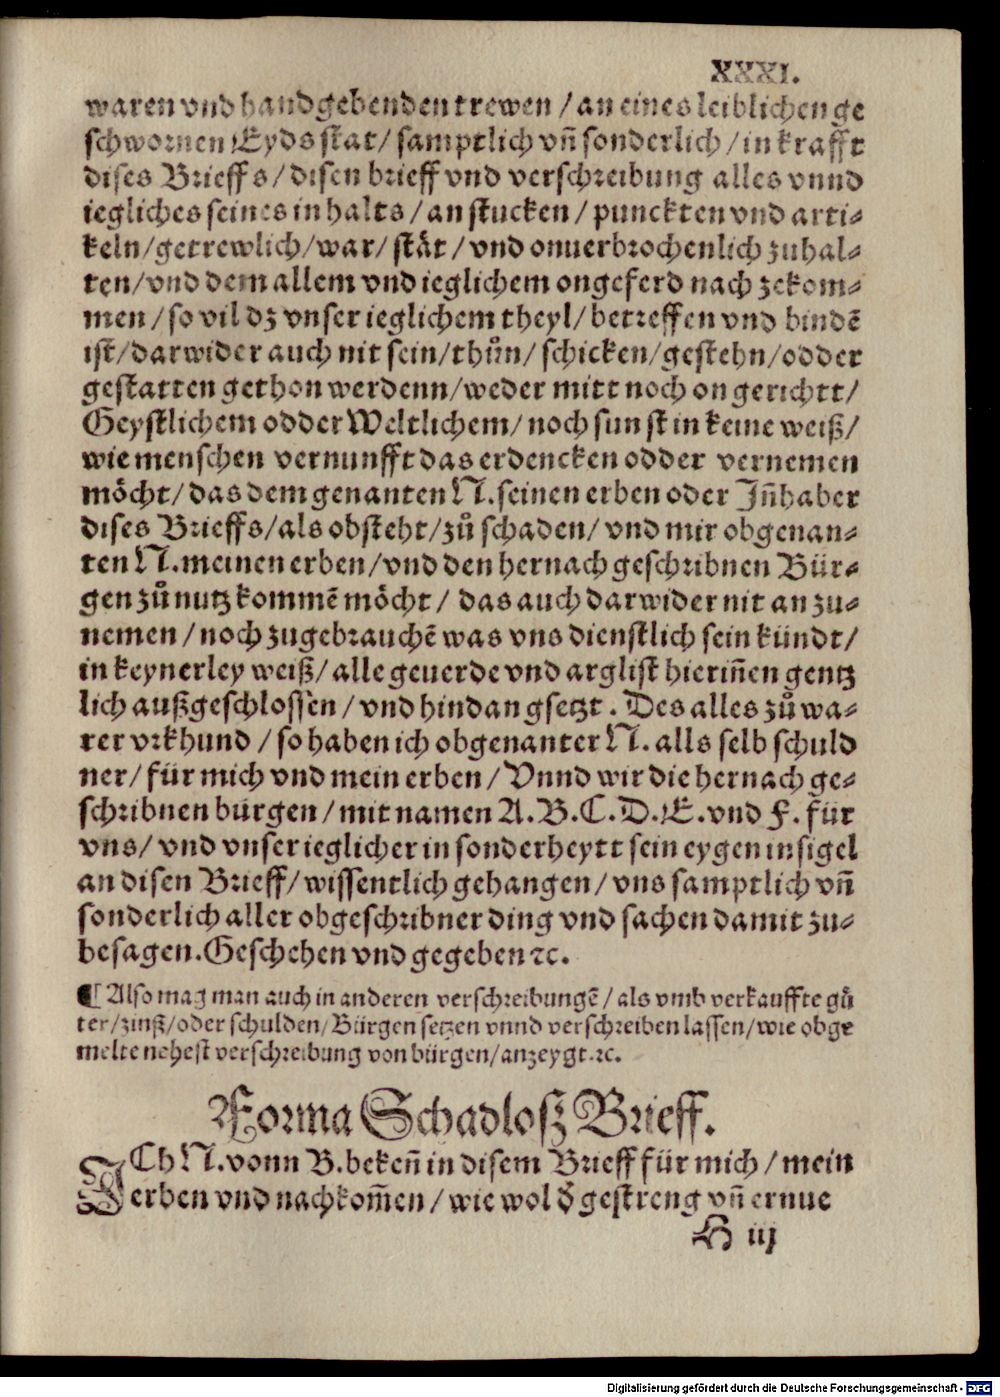 XXXI.
waren vnd handgebenden trewen / an eines leiblichen ge
schwornen Eyds stat / samptlich vñ sonderlich / in krafft
dises Brieffs / disen brieff vnd verschreibung alles vnnd
iegliches seines inhalts / an stucken / punckten vnd arti⸗
keln / getrewlich / war / stät / vnd onuerbrochenlich zuhal⸗
ten / vnd dem allem vnd ieglichem ongeferd nach zekom⸗
men / so vil dz vnser ieglichem theyl / betreffen vnd bindē
ist / darwider auch nit sein / thůn / schicken / gestehn / odder
gestatten gethon werdenn / weder mitt noch on gerichtt /
Geystlichem odder Weltlichem / noch sunst in keine weiß /
wie menschen vernunfft das erdencken odder vernemen
möcht / das dem genanten N. seinen erben oder Jñhaber
dises Brieffs / als obsteht / zů schaden / vnd mir obgenan⸗
ten N. meinen erben / vnd den hernach geschribnen Bür⸗
gen zů nutz kommē möcht / das auch darwider nit an zu⸗
nemen / noch zugebrauchē was vns dienstlich sein kündt /
in keynerley weiß / alle geuerde vnd arglist hieriñen gentz
lich außgeschlossen / vnd hindan gsetzt. Des alles zů wa⸗
rer vrkhund / so haben ich obgenanter N. alls selb schuld
ner / für mich vnd mein erben / Vnnd wir die hernach ge⸗
schribnen bürgen / mit namen A. B. C. D. E. vnd F. für
vns / vnd vnser ieglicher in sonderheytt sein eygen insigel
an disen Brieff / wissentlich gehangen / vns samptlich vñ
sonderlich aller obgeschribner ding vnd sachen damit zu⸗
besagen. Geschehen vnd gegeben ꝛc.
¶ Also mag man auch in anderen verschreibungē / als vmb verkauffte gů
ter / zinß / oder schulden / Bürgen setzen vnnd verschreiben lassen / wie obge
melte nehest verschreibung von bürgen / anzeygt. ꝛc.
Forma Schadloß Brieff.
ICh N. vonn B. bekeñ in disem Brieff für mich / mein
erben vnd nachkom̃en / wie wol d̕ gestreng vñ ernue
H iij
Digitalisierung gefördert durch die Deutsche Forschungsgemeinschaft - DFG